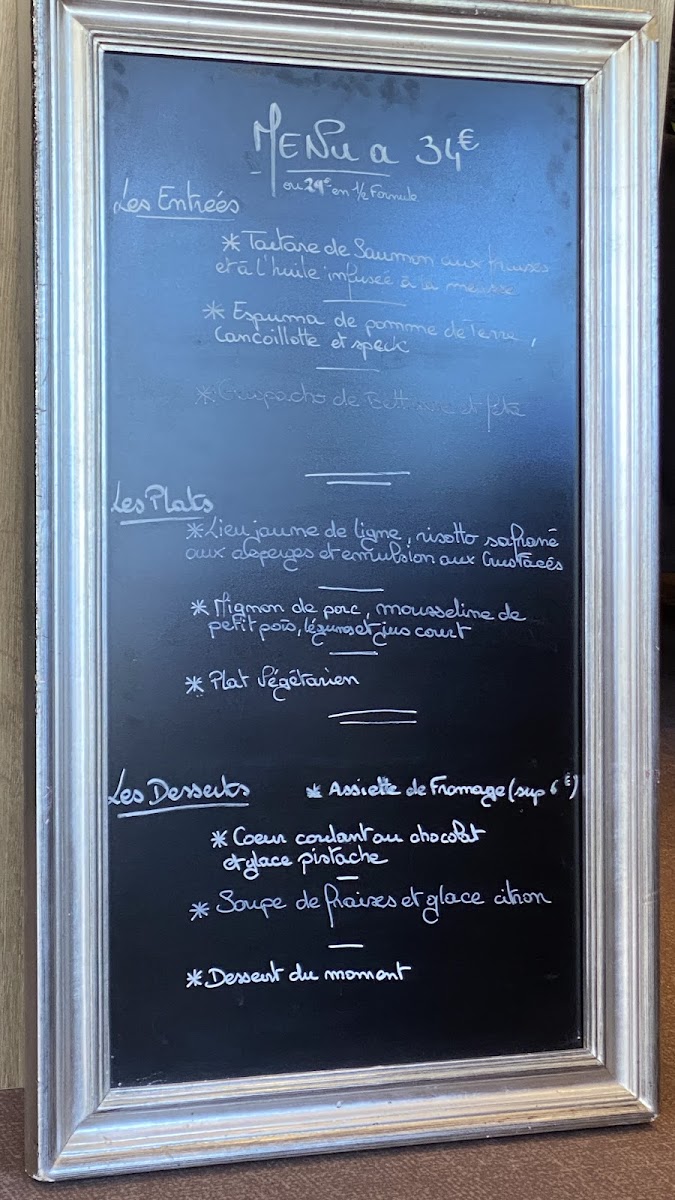 MENU a 34€
ou 29€ en 1/2 Formule
Les Entrées
* Tartare de Saumon aux fraises
et à l'huile infusée à la
* Espuma de pomme de Terre,
Cancoillotte et speck
* Gaspacho de Betterave et féta
Les Plats
* Lieu jaune de ligne, risotto safrané
aux asperges et emulsion aux Crustacés
* Mignon de porc, mousseline de
petit pois, légumes et jus court
* Plat Végétarien
Les Desserts * Assiette de Fromage (sup 6€)
* Coeur coulant au chocolat
et glace pistache
* Soupe de fraises et glace citron
* Dessert du moment